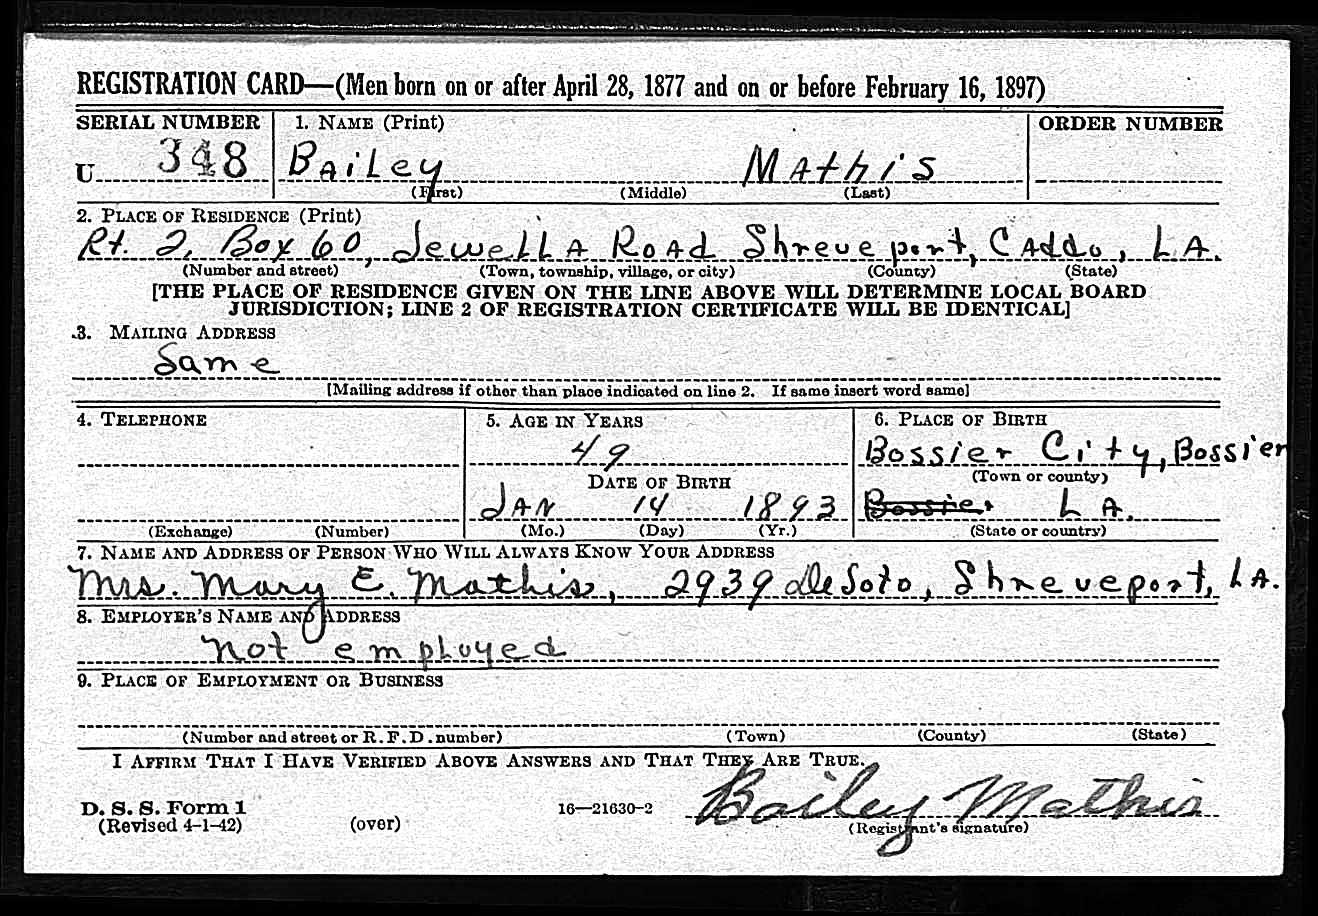 REGISTRATION CARD—(Men born on or after April 28, 1877 and on or before February 16, 1897)
SERIAL NUMBER 1. NAME (Print) ORDER NUMBER
U 348 Bailey Mathis
(First) (Middle) (Last)
2. PLACE OF RESIDENCE (Print)
Rt. 2, Box 60, Jewella Road Shreveport, Caddo, LA.
(Number and street) (Town, township, village, or city) (County) (State)
[THE PLACE OF RESIDENCE GIVEN ON THE LINE ABOVE WILL DETERMINE LOCAL BOARD
JURISDICTION; LINE 2 OF REGISTRATION CERTIFICATE WILL BE IDENTICAL]
3. MAILING ADDRESS
Same
[Mailing address if other than place indicated on line 2. If same insert word same]
4. TELEPHONE 5. AGE IN YEARS 6. PLACE OF BIRTH
49 Bossier City, Bossier
DATE OF BIRTH (Town or county)
JAN 14 1893 Bossier LA.
(Exchange) (Number) (Mo.) (Day) (Yr.) (State or country)
7. NAME AND ADDRESS OF PERSON WHO WILL ALWAYS KNOW YOUR ADDRESS
Mrs. Mary E. Mathis, 2939 DeSoto, Shreveport, LA.
8. EMPLOYER'S NAME AND ADDRESS
not employed
9. PLACE OF EMPLOYMENT OR BUSINESS
(Number and street or R.F.D. number) (Town) (County) (State)
I AFFIRM THAT I HAVE VERIFIED ABOVE ANSWERS AND THAT THEY ARE TRUE.
D. S. S. Form 1 16—21630-2 Bailey Mathis
(Revised 4-1-42) (over) (Registrant's signature)